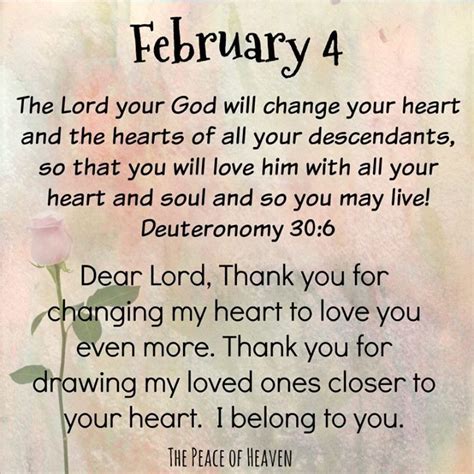 February 4
The Lord your God will change your heart
and the hearts of all your descendants,
so that you will love him with all your
heart and soul and so you may live!
Deuteronomy 30:6
Dear Lord, Thank you for
changing my heart to love you
even more. Thank you for
drawing my loved ones closer to
your heart. I belong to you.
The Peace of Heaven